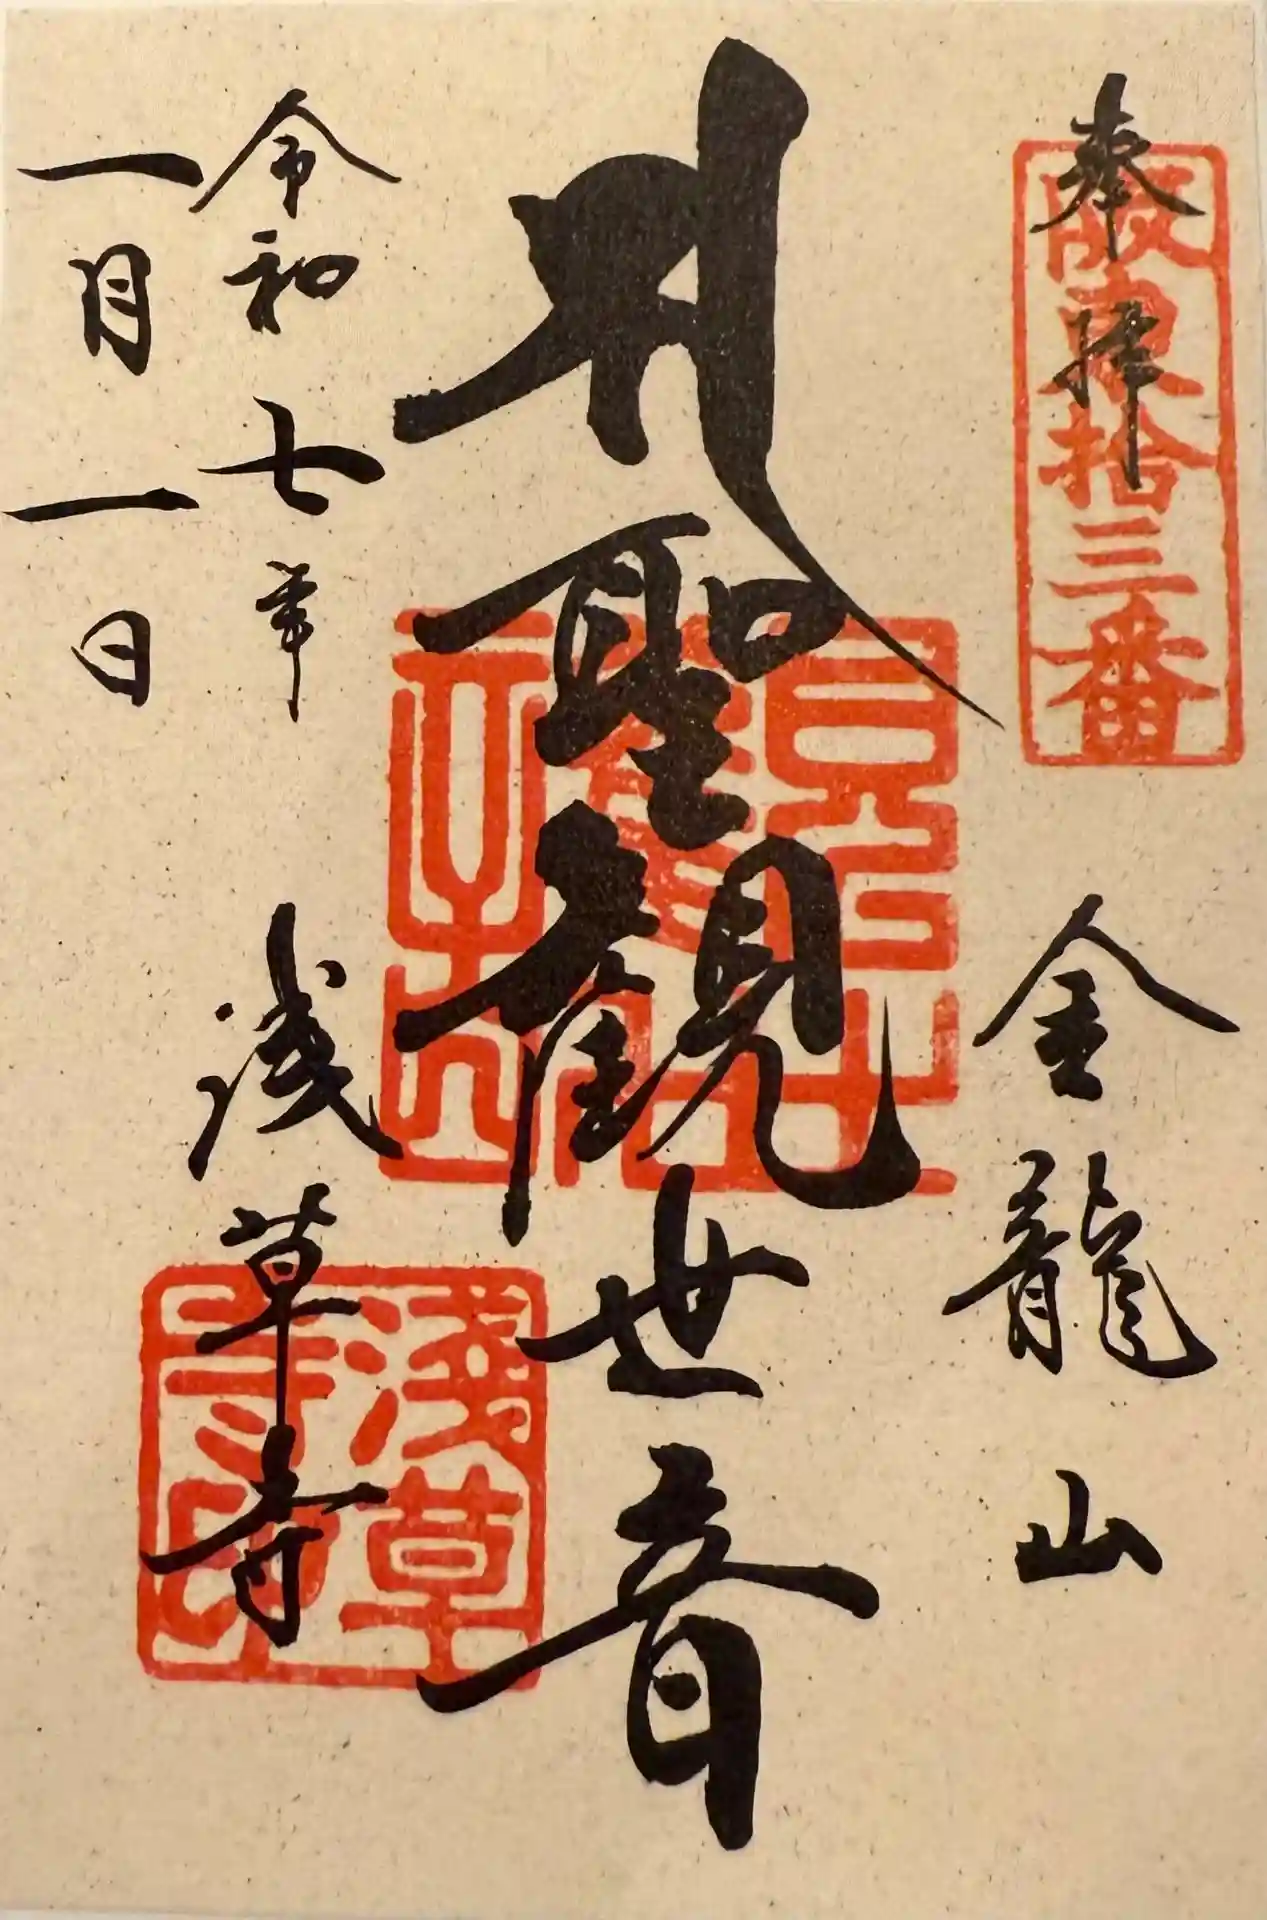 奉拝
坂東拾三番
金龍山
聖観世音
浅草寺
淺草寺印
令和七年
一月一日